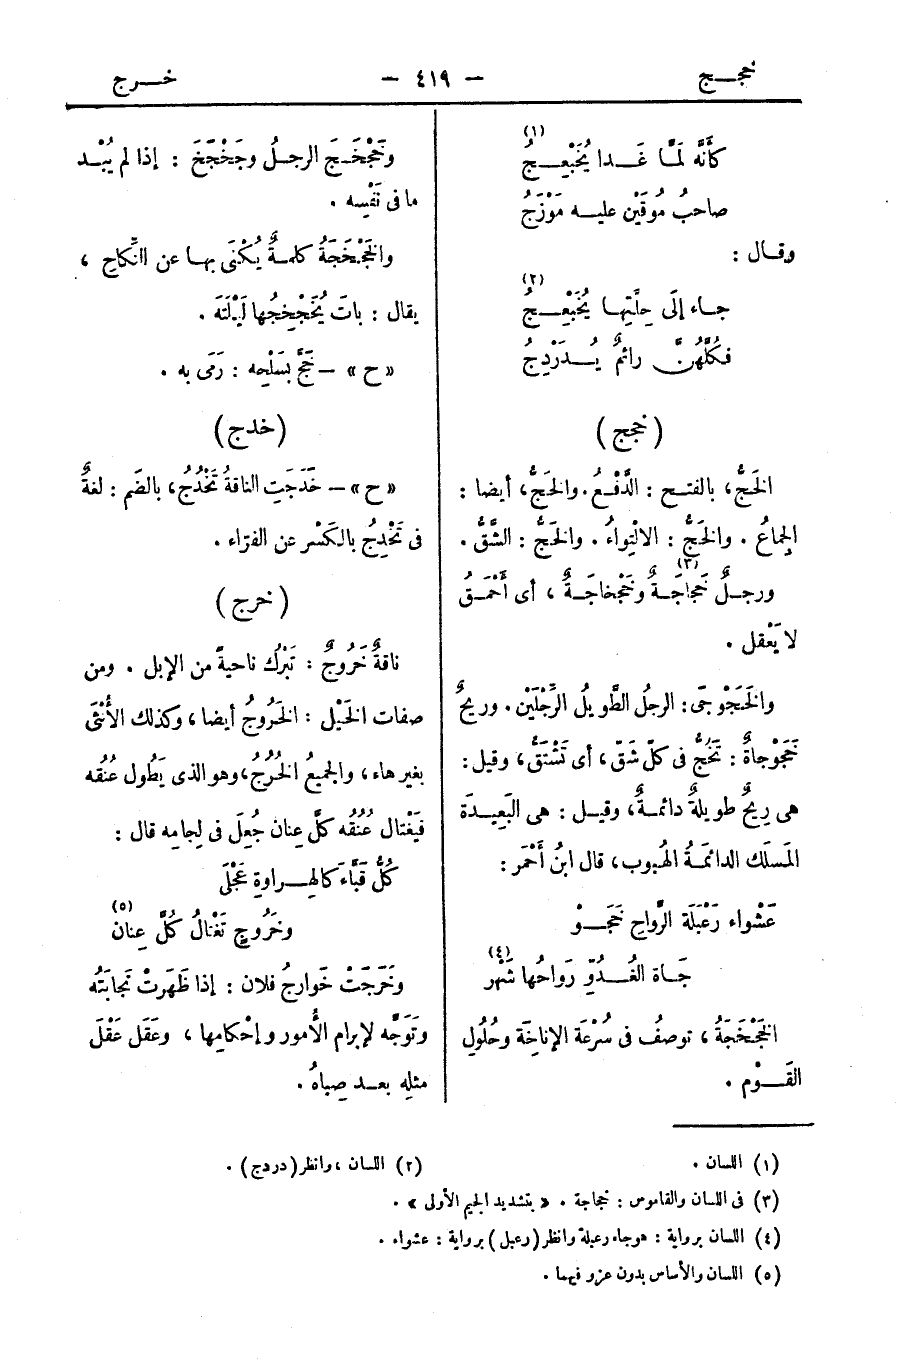 خجـــج
— ٤١٩ —
خـــرج
كأنَّه لمّا غَــدا يُخَبْعِــجُ (١)
صاحبُ مُوقَيْن عليــه مَوْزَجُ
وقـال :
جــاء إلَى جِلَّتِهــا يُخَبْعِــجُ (٢)
فكُلُّهُنَّ رائمٌ يُــدَرْدِجُ
( خجج )
الخَجُّ، بالفتـح : الدَّفْعُ. والخَجُّ، أيضا :
الِجماعُ . والخَجُّ : الالْتِواءُ . والخَجُّ : الشَّقُّ .
ورجــلٌ خَجاجَــةٌ (٣) وخَجْخاجَــةٌ ، أى أَحْمَــقُ
لا يَعْقل .
والخَجَوْجَى: الرجلُ الطَّويلُ الرِّجْلَيْن. وريحٌ
خَجَوْجاةٌ : تَخُجُّ فى كلّ شَقّ، أى تَشْتَقُّ، وقيل :
هى رِيحٌ طويلةٌ دائمـةٌ، وقيـل : هى البَعِيــدَة
المَسلَك الدائمَـةُ الهُبوب، قال ابنُ أَحْمَر :
عَشْواء رَعْبَلَة الرَّواحِ خَجَــوْ
جَــاة الغُــدُوِّ رَواحُها شَهْر (٤)
الخَجْخَجَةُ ، توصفُ فى سُرْعَة الإناخَة وحُلُولِ
القَــوْم .
وخَجْخَـجَ الرجــلُ وجَخْجَخَ : إذا لم يُبْــد
ما فى نَفْسِه .
والخَجْخَجَةُ كلمــةٌ يُكْنَى بهـا عن النِّكاحِ ،
يقال : باتَ يُخَجْخِجُها لَيْلَتَه .
«ح» — خَجَّ بسَلْحِه : رَمَى به .
( خدج )
«ح» — خَدَجَتِ الناقةُ تَخْدُجُ، بالضّم : لغةٌ
فى تَخْدِجُ بالكَسْر عن الفرّاء .
( خرج )
ناقةٌ خَرُوجٌ : تَبْرُك ناحيةً من الإبل . ومن
صفات الخَيْل : الخَرُوجُ أيضا، وكذلك الأُنْثَى
بغير هاء، والجميعُ الخُرُجُ، وهو الذى يَطُول عُنُقه
فيَغْتال عُنُقه كلَّ عِنان جُعِلَ فى لِجامِه قال :
كُلُّ قَبَّاءَ كالهِــراوةِ عَجْلَى
وخَرُوجٍ تَغْتالُ كُلَّ عِنانِ (٥)
وخَرَجَتْ خَوارجُ فلان : إذا ظَهَرتْ نَجَابَتُه
وتَوَجَّه لإبرام الأُمور وإحْكامِها ، وعَقَل عَقْلَ
مثلِه بعـد صِباهُ .
(١) اللسان .
(٢) اللسان ، وانظر ( دردج ) .
(٣) فى اللسان والقاموس : خجاجة . « بتشديد الجيم الأولى » .
(٤) اللسان برواية : هوجاء رعبلة وانظر ( رعبل ) برواية : عشواء .
(٥) اللسان والأساس بدون عزو فيهما .